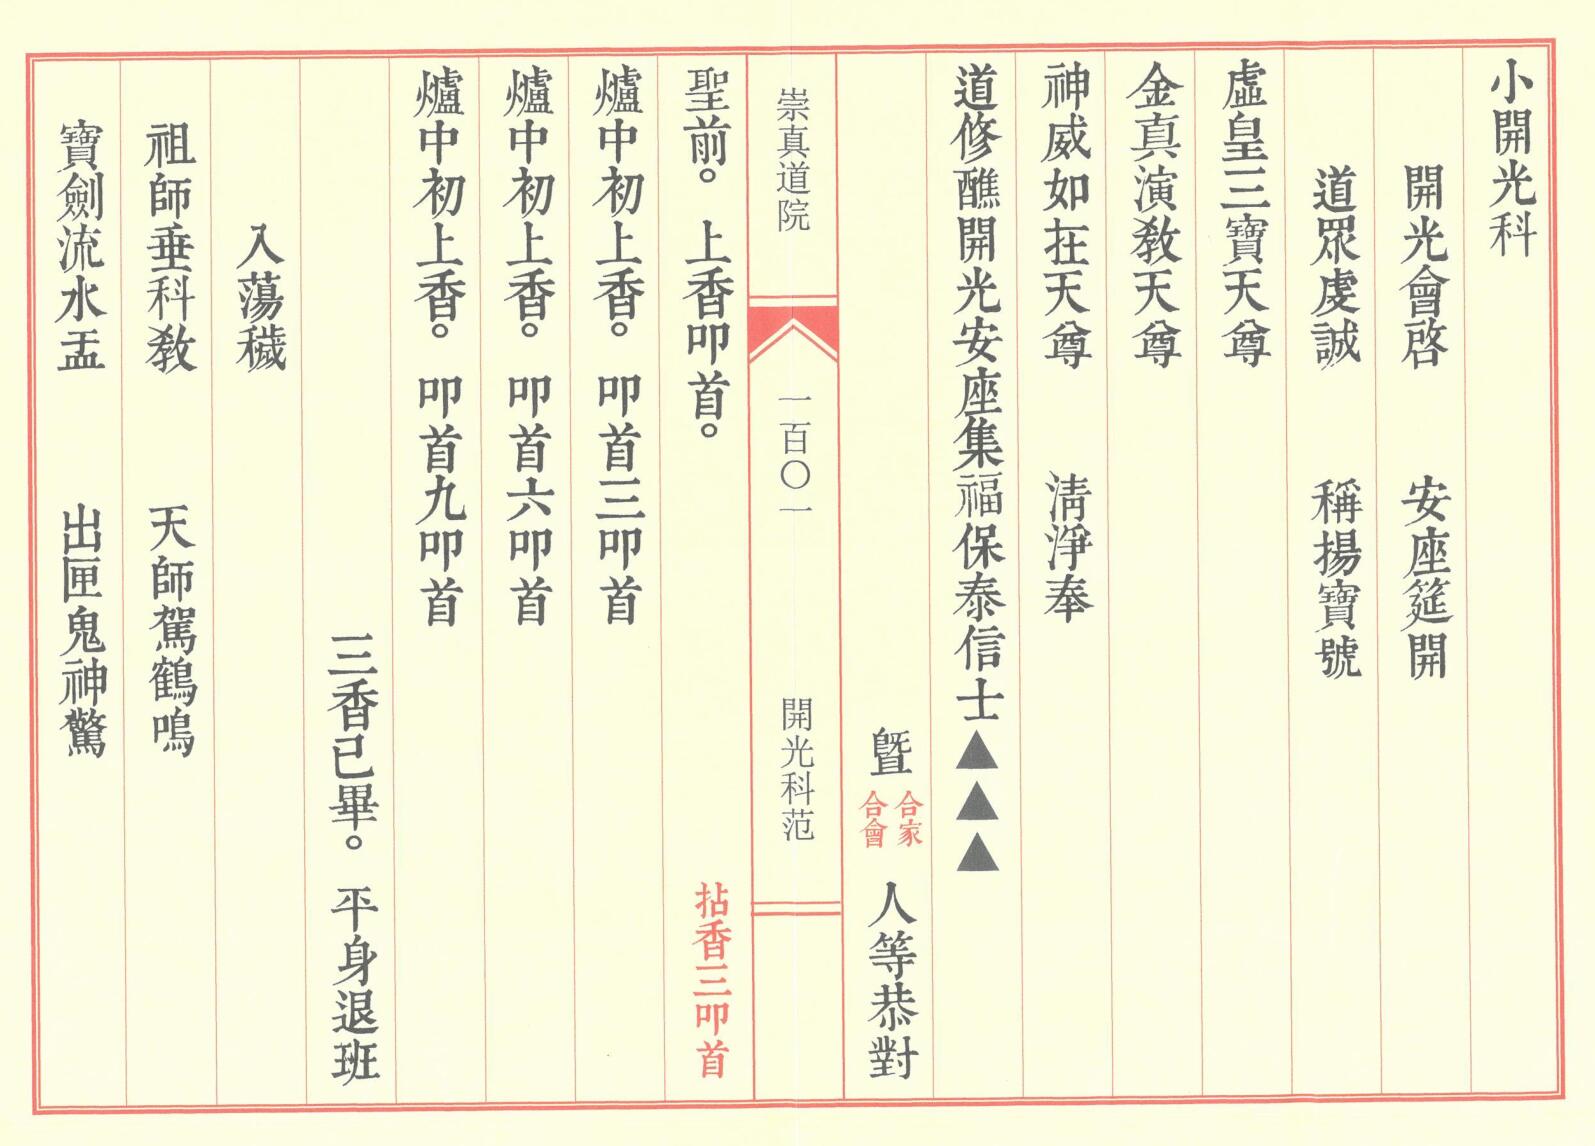 小開光科
開光會啓　安座筵開
道眾虔誠　稱揚寶號
虛皇三寶天尊
金真演教天尊
神威如在天尊　清淨奉
道修醮開光安座集福保泰信士▲▲▲
暨 合家 合會 人等恭對
崇真道院　一百〇一　開光科范
聖前。上香叩首。　拈香三叩首
爐中初上香。叩首三叩首
爐中初上香。叩首六叩首
爐中初上香。叩首九叩首
三香已畢。平身退班
入蕩穢
祖師垂科教　天師駕鶴鳴
寶劍流水盂　出匣鬼神驚